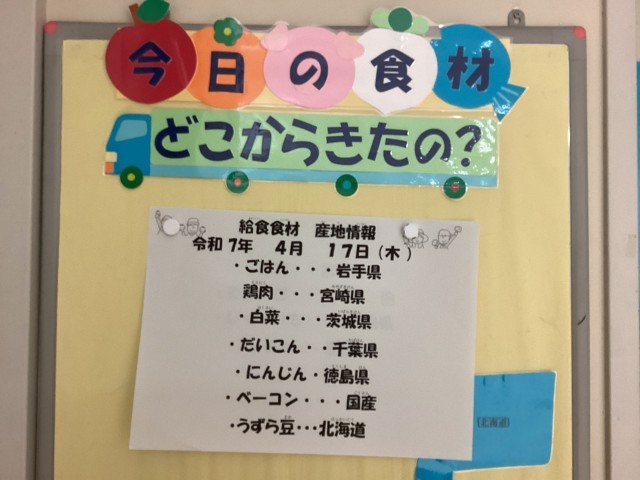 今日の食材
どこからきたの?
給食食材　産地情報
令和 7年　4月　17日(木)
・ごはん・・・岩手県
鶏肉・・・宮崎県
・白菜・・・茨城県
・だいこん・・千葉県
・にんじん・徳島県
・ベーコン・・・国産
・うずら豆・・・北海道
(北海道)